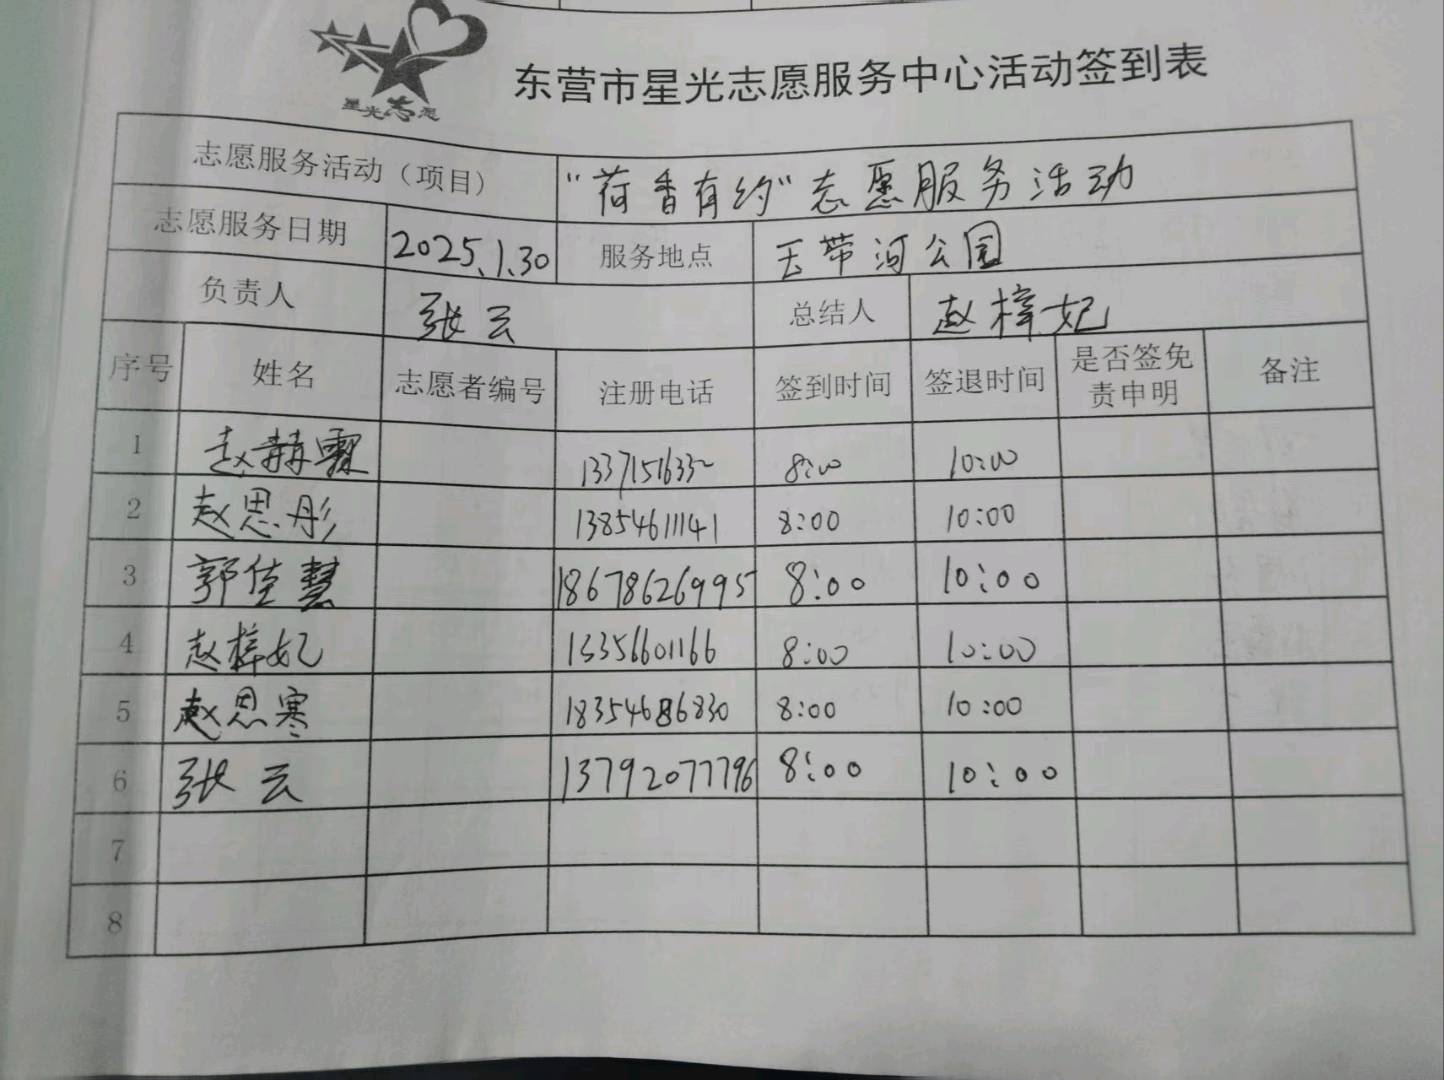 星光志愿
东营市星光志愿服务中心活动签到表
志愿服务活动（项目） “荷香有约”志愿服务活动
志愿服务日期 2025.1.30 服务地点 玉带河公园
负责人 张云 总结人 赵梓妃
序号 姓名 志愿者编号 注册电话 签到时间 签退时间 是否签免责申明 备注
1 赵赫霖 8:00 10:00
2 赵思彤 13854611141 8:00 10:00
3 郭佳慧 18678626995 8:00 10:00
4 赵梓妃 13356601166 8:00 10:00
5 赵思寒 18354686830 8:00 10:00
6 张云 13792077796 8:00 10:00
7
8